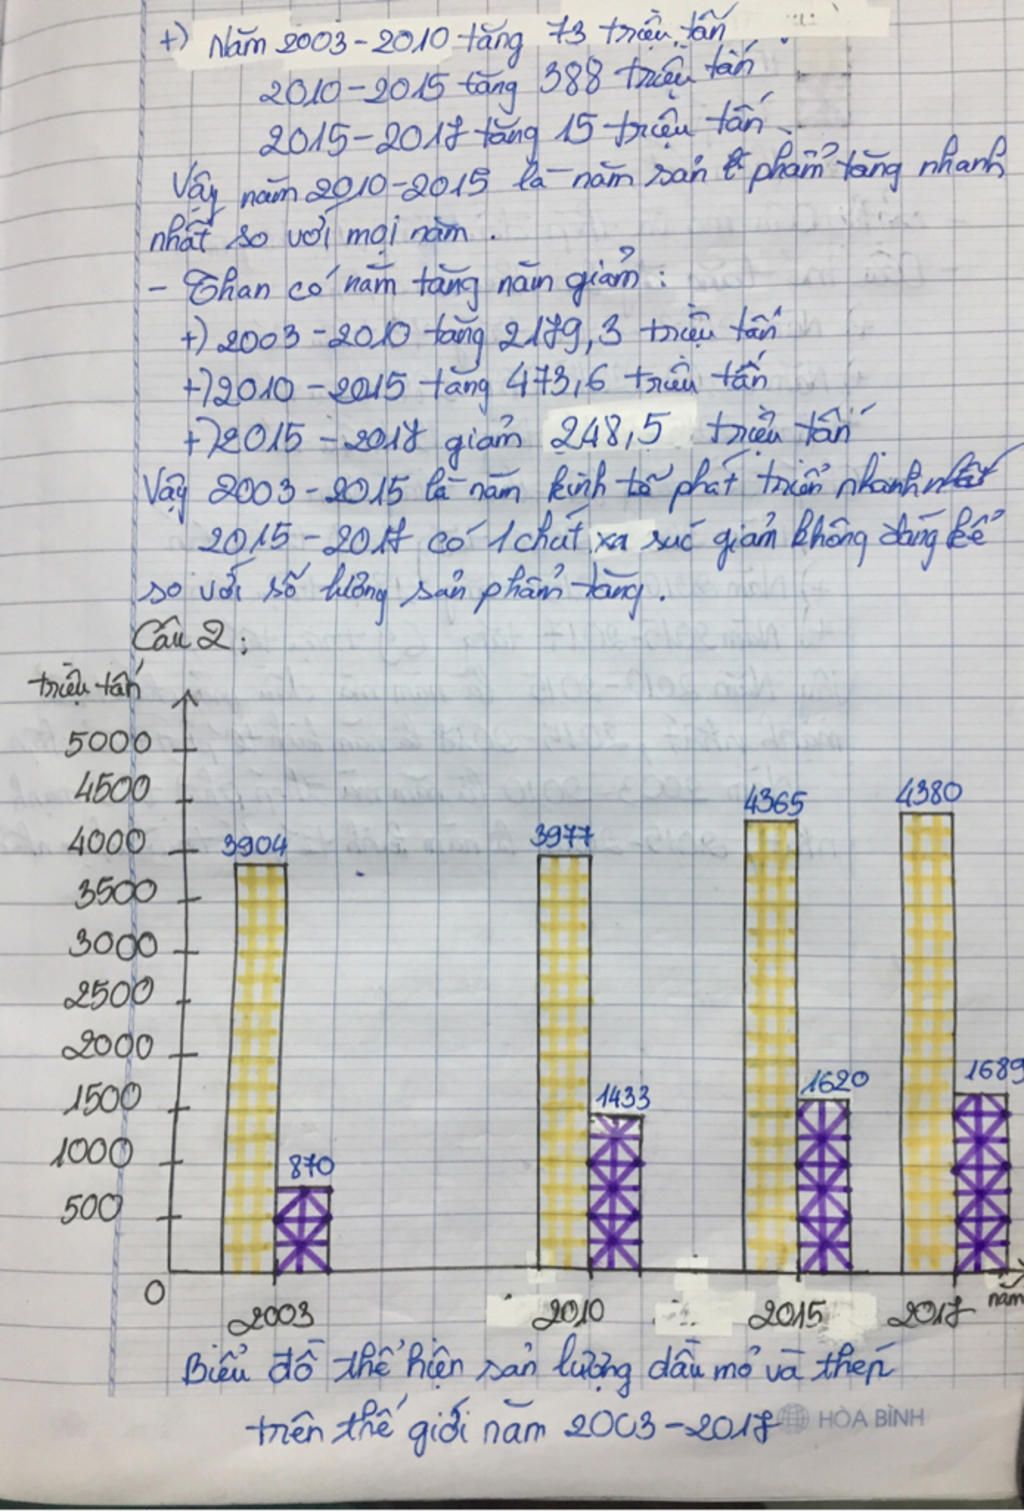 +) Năm 2003-2010 tăng 73 triệu tấn.
2010-2015 tăng 388 triệu tấn
2015-2017 tăng 15 triệu tấn.
Vậy năm 2010-2015 là năm sản phẩm tăng nhanh
nhất so với mọi năm.
- Than có năm tăng năm giảm:
+) 2003-2010 tăng 2179,3 triệu tấn
+) 2010-2015 tăng 473,6 triệu tấn
+) 2015-2017 giảm 248,5 triệu tấn
Vậy 2003-2015 là năm kinh tế phát triển nhanh nhất
2015-2017 có 1 chút xa súc giảm không đáng kể
so với số lượng sản phẩm tăng.
Câu 2:
triệu tấn
5000
4500
4000
3500
3000
2500
2000
1500
1000
500
0
3904
870
3977
1433
4365
1620
4380
1689
2003 2010 2015 2017 năm
Biểu đồ thể hiện sản lượng dầu mỏ và thép
trên thế giới năm 2003-2017
HÒA BÌNH